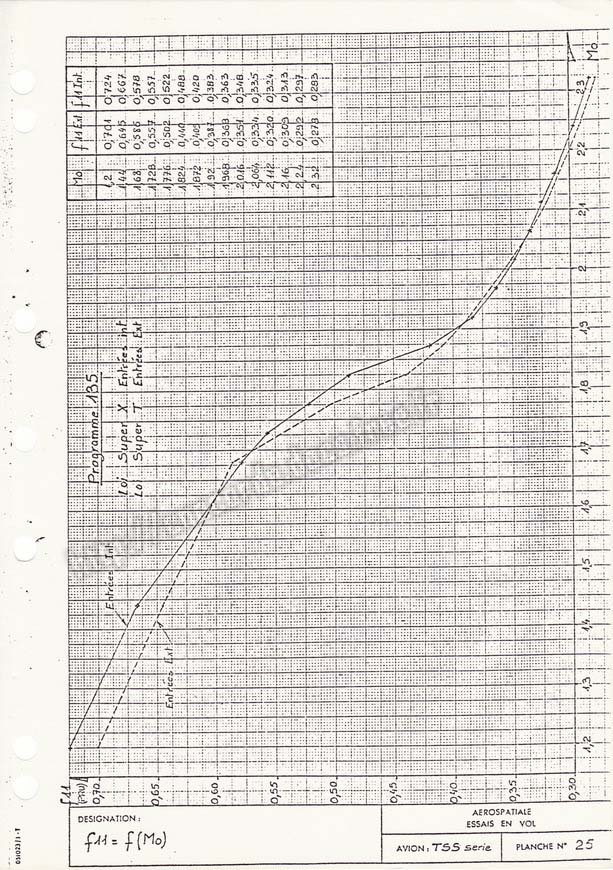 Programme 135
Loi Super X Entrées int.
Loi Super T Entrées Ext
Mo f11 Ext f11 Int.
1,2 0,701 0,724
1,44 0,645 0,667
1,68 0,586 0,578
1,728 0,557 0,557
1,776 0,502 0,522
1,824 0,440 0,488
1,872 0,409 0,420
1,92 0,387 0,383
1,968 0,368 0,363
2,016 0,351 0,348
2,064 0,334 0,335
2,112 0,320 0,324
2,16 0,309 0,313
2,24 0,292 0,297
2,32 0,278 0,283
Entrées Int
Entrées Ext
f11
0,70
0,65
0,60
0,55
0,50
0,45
0,40
0,35
0,30
1,2
1,3
1,4
1,5
1,6
1,7
1,8
1,9
2
2,1
2,2
2,3
Mo
DESIGNATION :
f11 = f(Mo)
AEROSPATIALE
ESSAIS EN VOL
AVION : TSS serie
PLANCHE N° 25